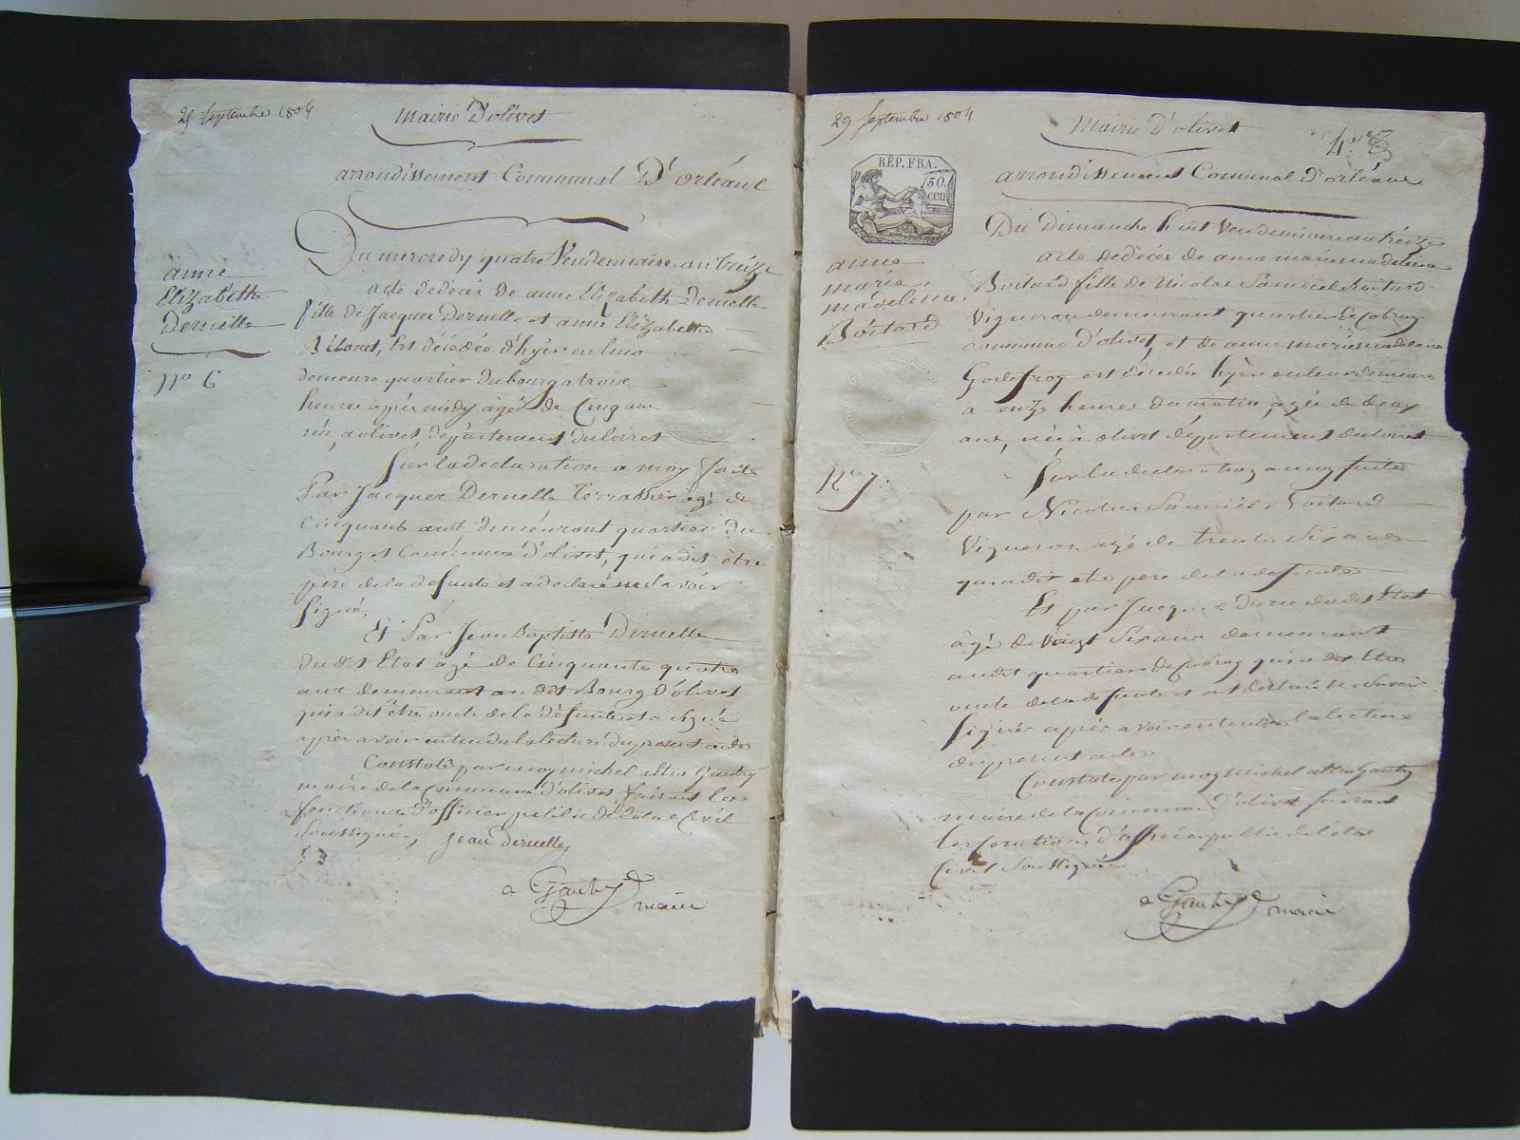 25 Septembre 1804
Mairie D'olivet
arrondissement Communal D'orléans
Du mercredy quatre Vendemiaire an treize
anne
Elizabeth
Deruelle
n° 6
acte de décès de anne Elizabeth Deruelle
fille de Jacque Deruelle et anne Elizabette
Est décédée d'hyer en leur
demeure quartier du bourg a trois
heure après midy agée de Cinq ans
née a olivet département du loiret
Sur la declaration a moy faite
Par Jacques Deruelle Terrassier agé de
Cinquante ans demeurant quartier du
Bourg et Commune d'olivet, qui a dit être
père de la defunte et a declaré ne savoir
Signé.
Et Par Jean Baptiste Deruelle
du dit Etat agé de Cinquante quatre
ans demeurant au dit Bourg d'olivet
qui a dit être oncle de la défunte et a signé
après avoir entendu la lecture du present acte
Constaté par moy michel allin Gaudry
maire de la Commune d'olivet faisant les
fonctions d'officier public de l'etat Civil
Soussigné, jean deruelle
a Gaudry
maire
29 Septembre 1804
Mairie D'olivet
arrondissement Communal d'orléans
RÉP. FRA.
50
anne
marie
madeleine
Boitard
N° 7.
Du Dimanche huit Vendemiaire an treize
acte de décès de anne marie madeleine
Boitard fille de Nicolas Boitard
Vigneron demeurant quartier
commune d'olivet, et de anne marie madeleine
Godefroy est décédée hyer en leur demeure
a onze heures du matin agée de deux
ans, née à olivet département du loiret
Sur la declaration a moy faite
par Nicolas Boitard
Vigneron agé de trente six ans
qui a dit etre pere de la defunte
Et par Jacque du dit Etat
âgé de vingt Six ans demeurant
au dit quartier qui a dit Etre
oncle de la defunte et ont declaré ne savoir
Signer après avoir entendu la lecture
du present acte
Constaté par moy michel allin Gaudry
maire de la Commune d'olivet faisant
les fonctions d'officier public de l'état
Civil Soussigné
a Gaudry
maire